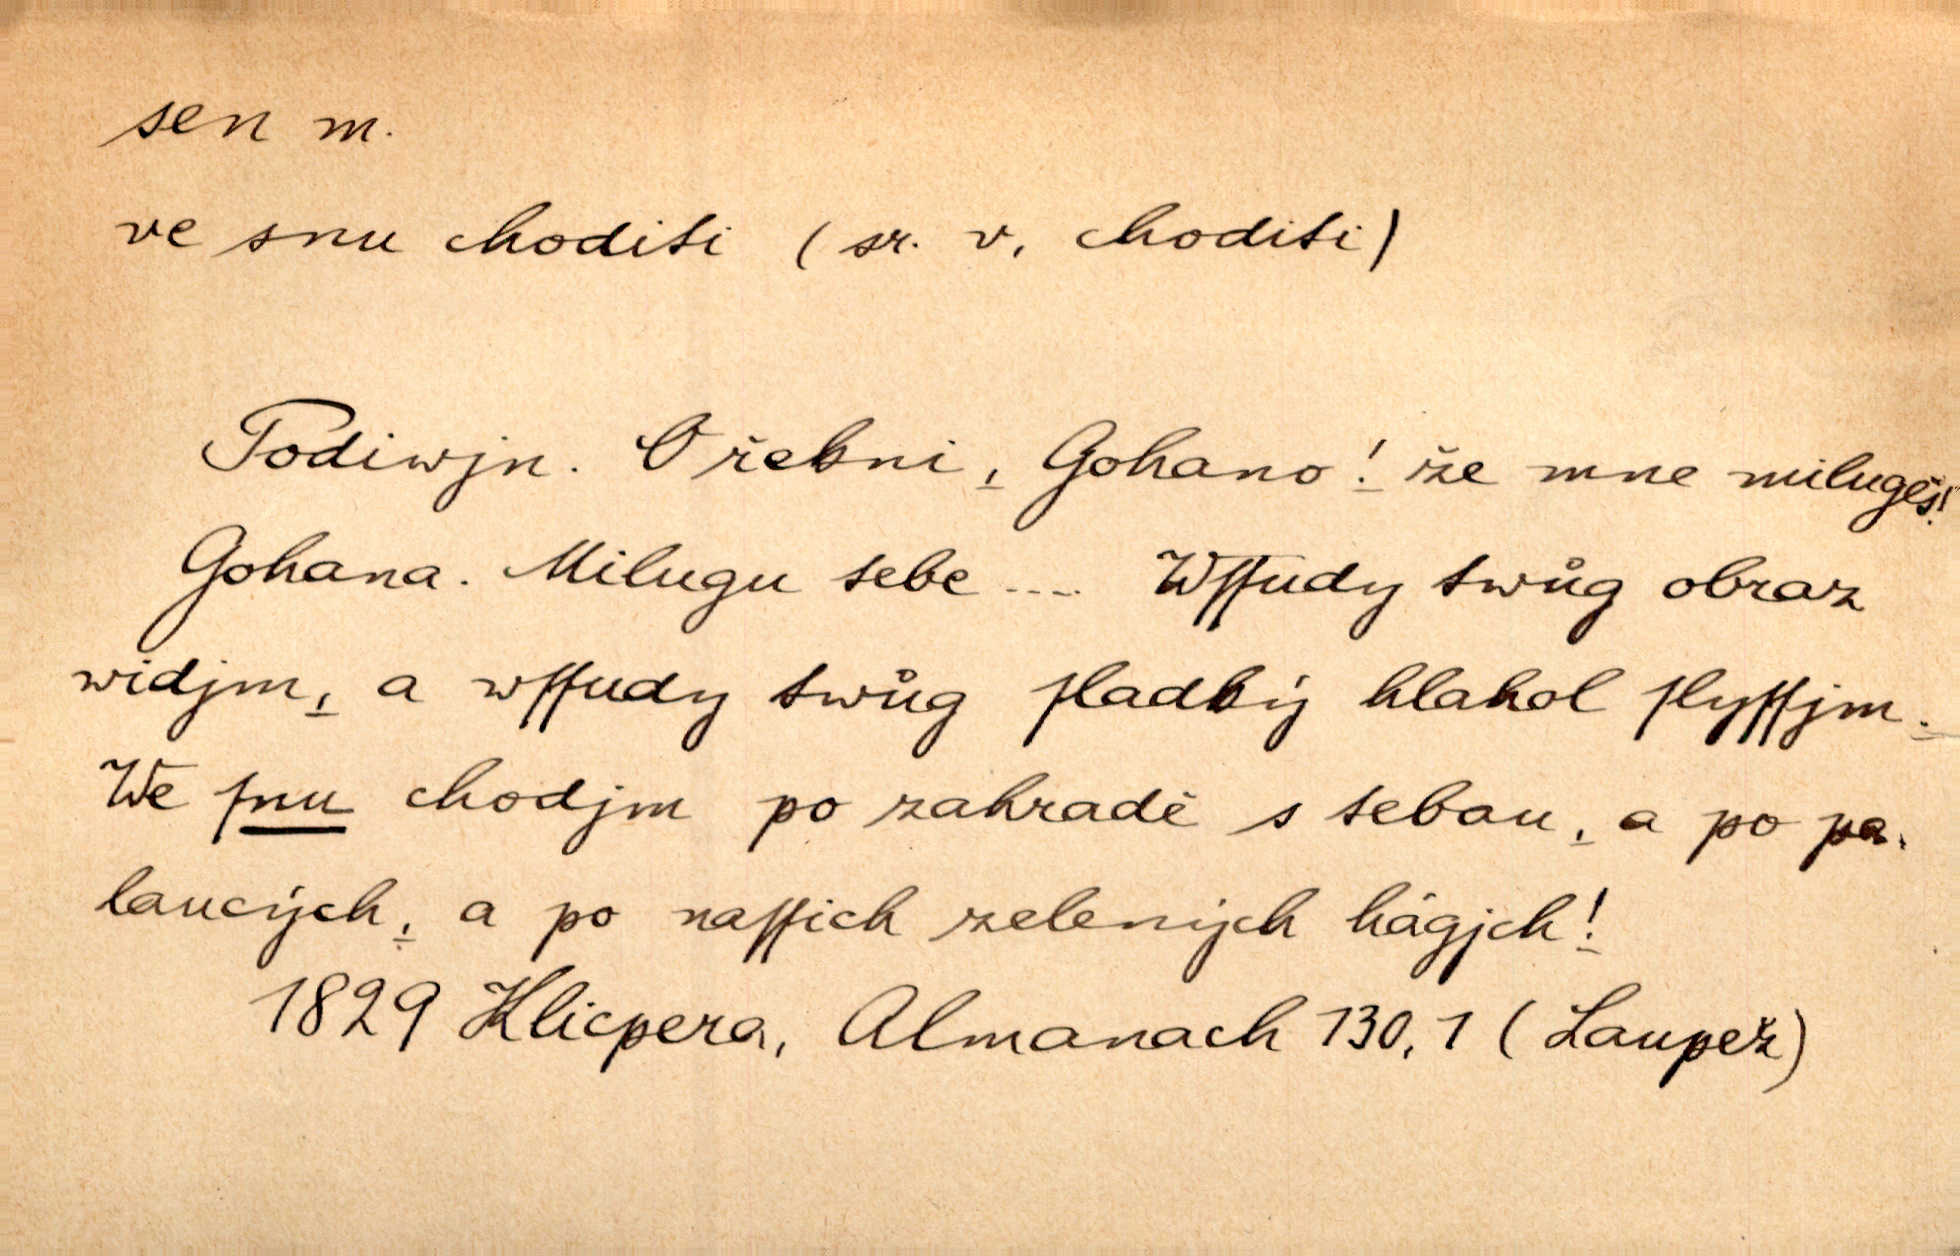 sen m.
ve snu choditi (sr. v. choditi)
Podiwjn. O řekni, Gohano! že mne milugeš!
Gohana. Milugu tebe .... Wſſudy twůg obraz
widjm, a wſſudy twůg ſladký hlahol ſlyſſjm.
We ſnu chodjm po zahradě s tebau, a po pa-
laucých, a po naſſich zelených hágjch!
1829 Klicpera, Almanach 130, 1 (Laupež)